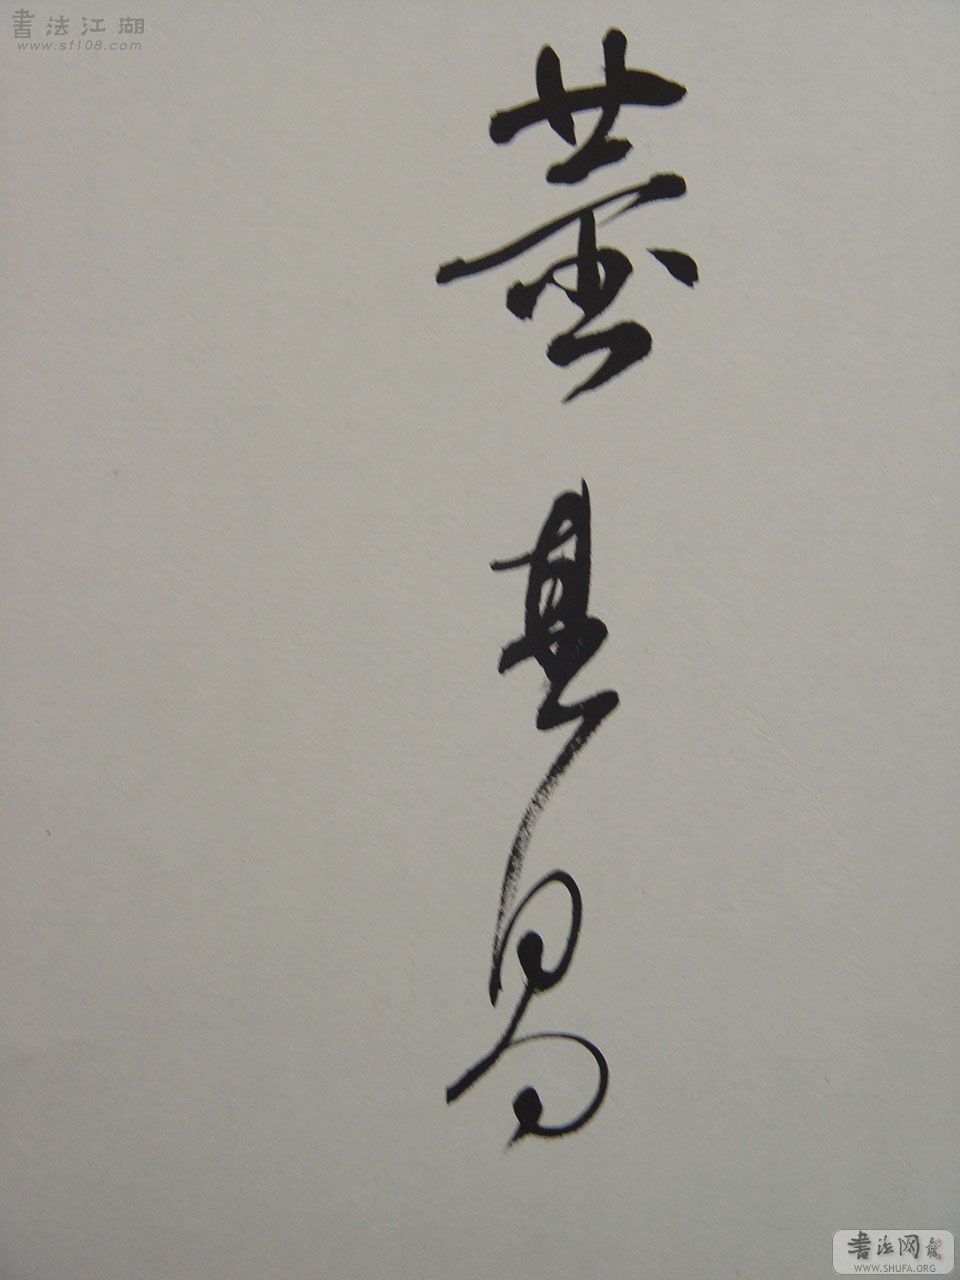 書法江湖
www.sf108.com
董其昌
書法网
WWW.SHUFA.ORG